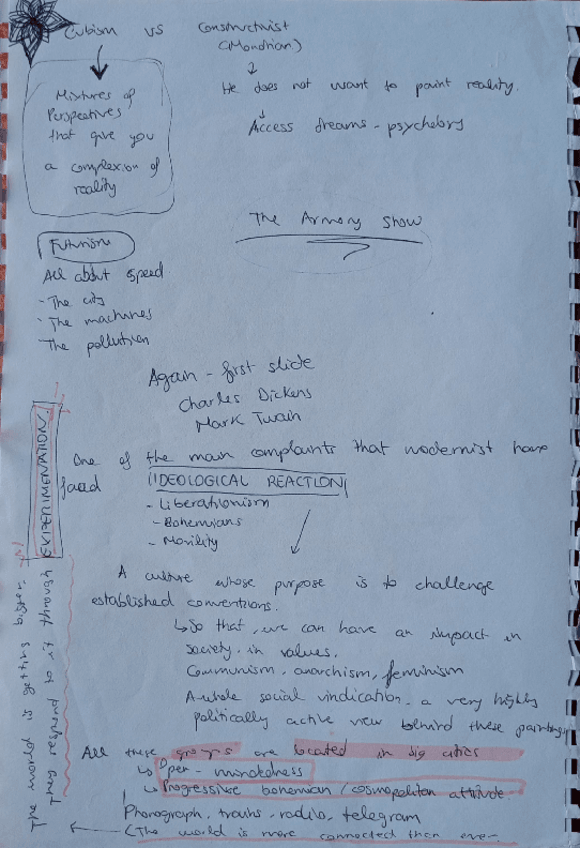 Cubism vs Constructivist
(Mondrian)
He does not want to paint reality.
Access dreams - psychology
Mixtures of
Perspectives
that give you
a complexion of
reality
The Armory Show
Futurism
All about speed
- The city
- The machines
- The pollution
Again - first slide
Charles Dickens
Mark Twain
One of the main complaints that modernist have
faced (IDEOLOGICAL REACTION)
- Liberationism
- Bohemians
- Movility
A culture whose purpose is to challenge
established conventions.
So that, we can have an impact in
society, in values.
Communism, anarchism, feminism
A whole social vindication. a very highly
politically active view behind these paintings
All these groups are located in big cities
Open-mindedness
Progressive bohemian / cosmopolitan attitude.
Phonograph, trains, radio, telegram
(The world is more connected than ever.
The world is getting bigger.
They respond to it through EXPERIMENTATION